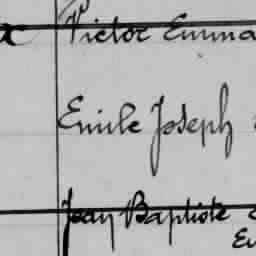 Victor Emma
Emile Joseph
Jean Baptiste